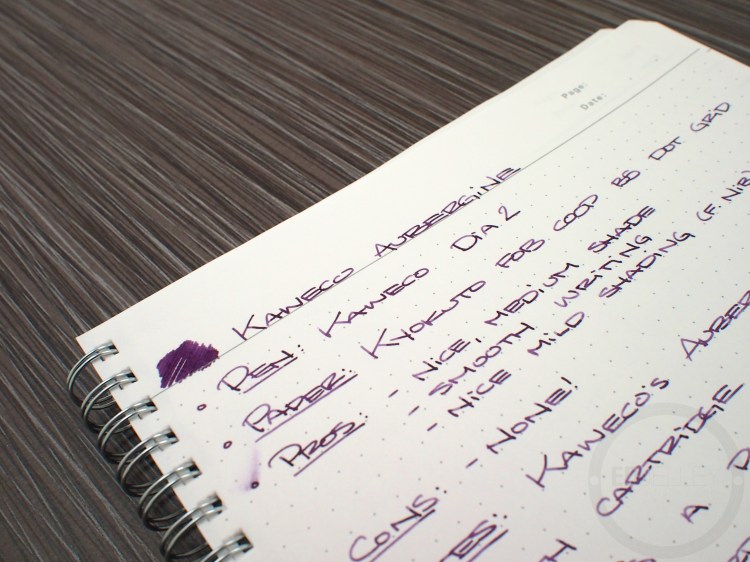 Page:
Date:
KAWECO AUBERGINE
• PEN: KAWECO DIA 2
• PAPER: KYOKUTO FOB COOP B5 DOT GRID
• PROS: - NICE, MEDIUM SHADE
- SMOOTH WRITING
- NICE MILD SHADING (F. NIB)
CONS: - NONE!
KAWECO'S AUBER
CARTRIDGE
A